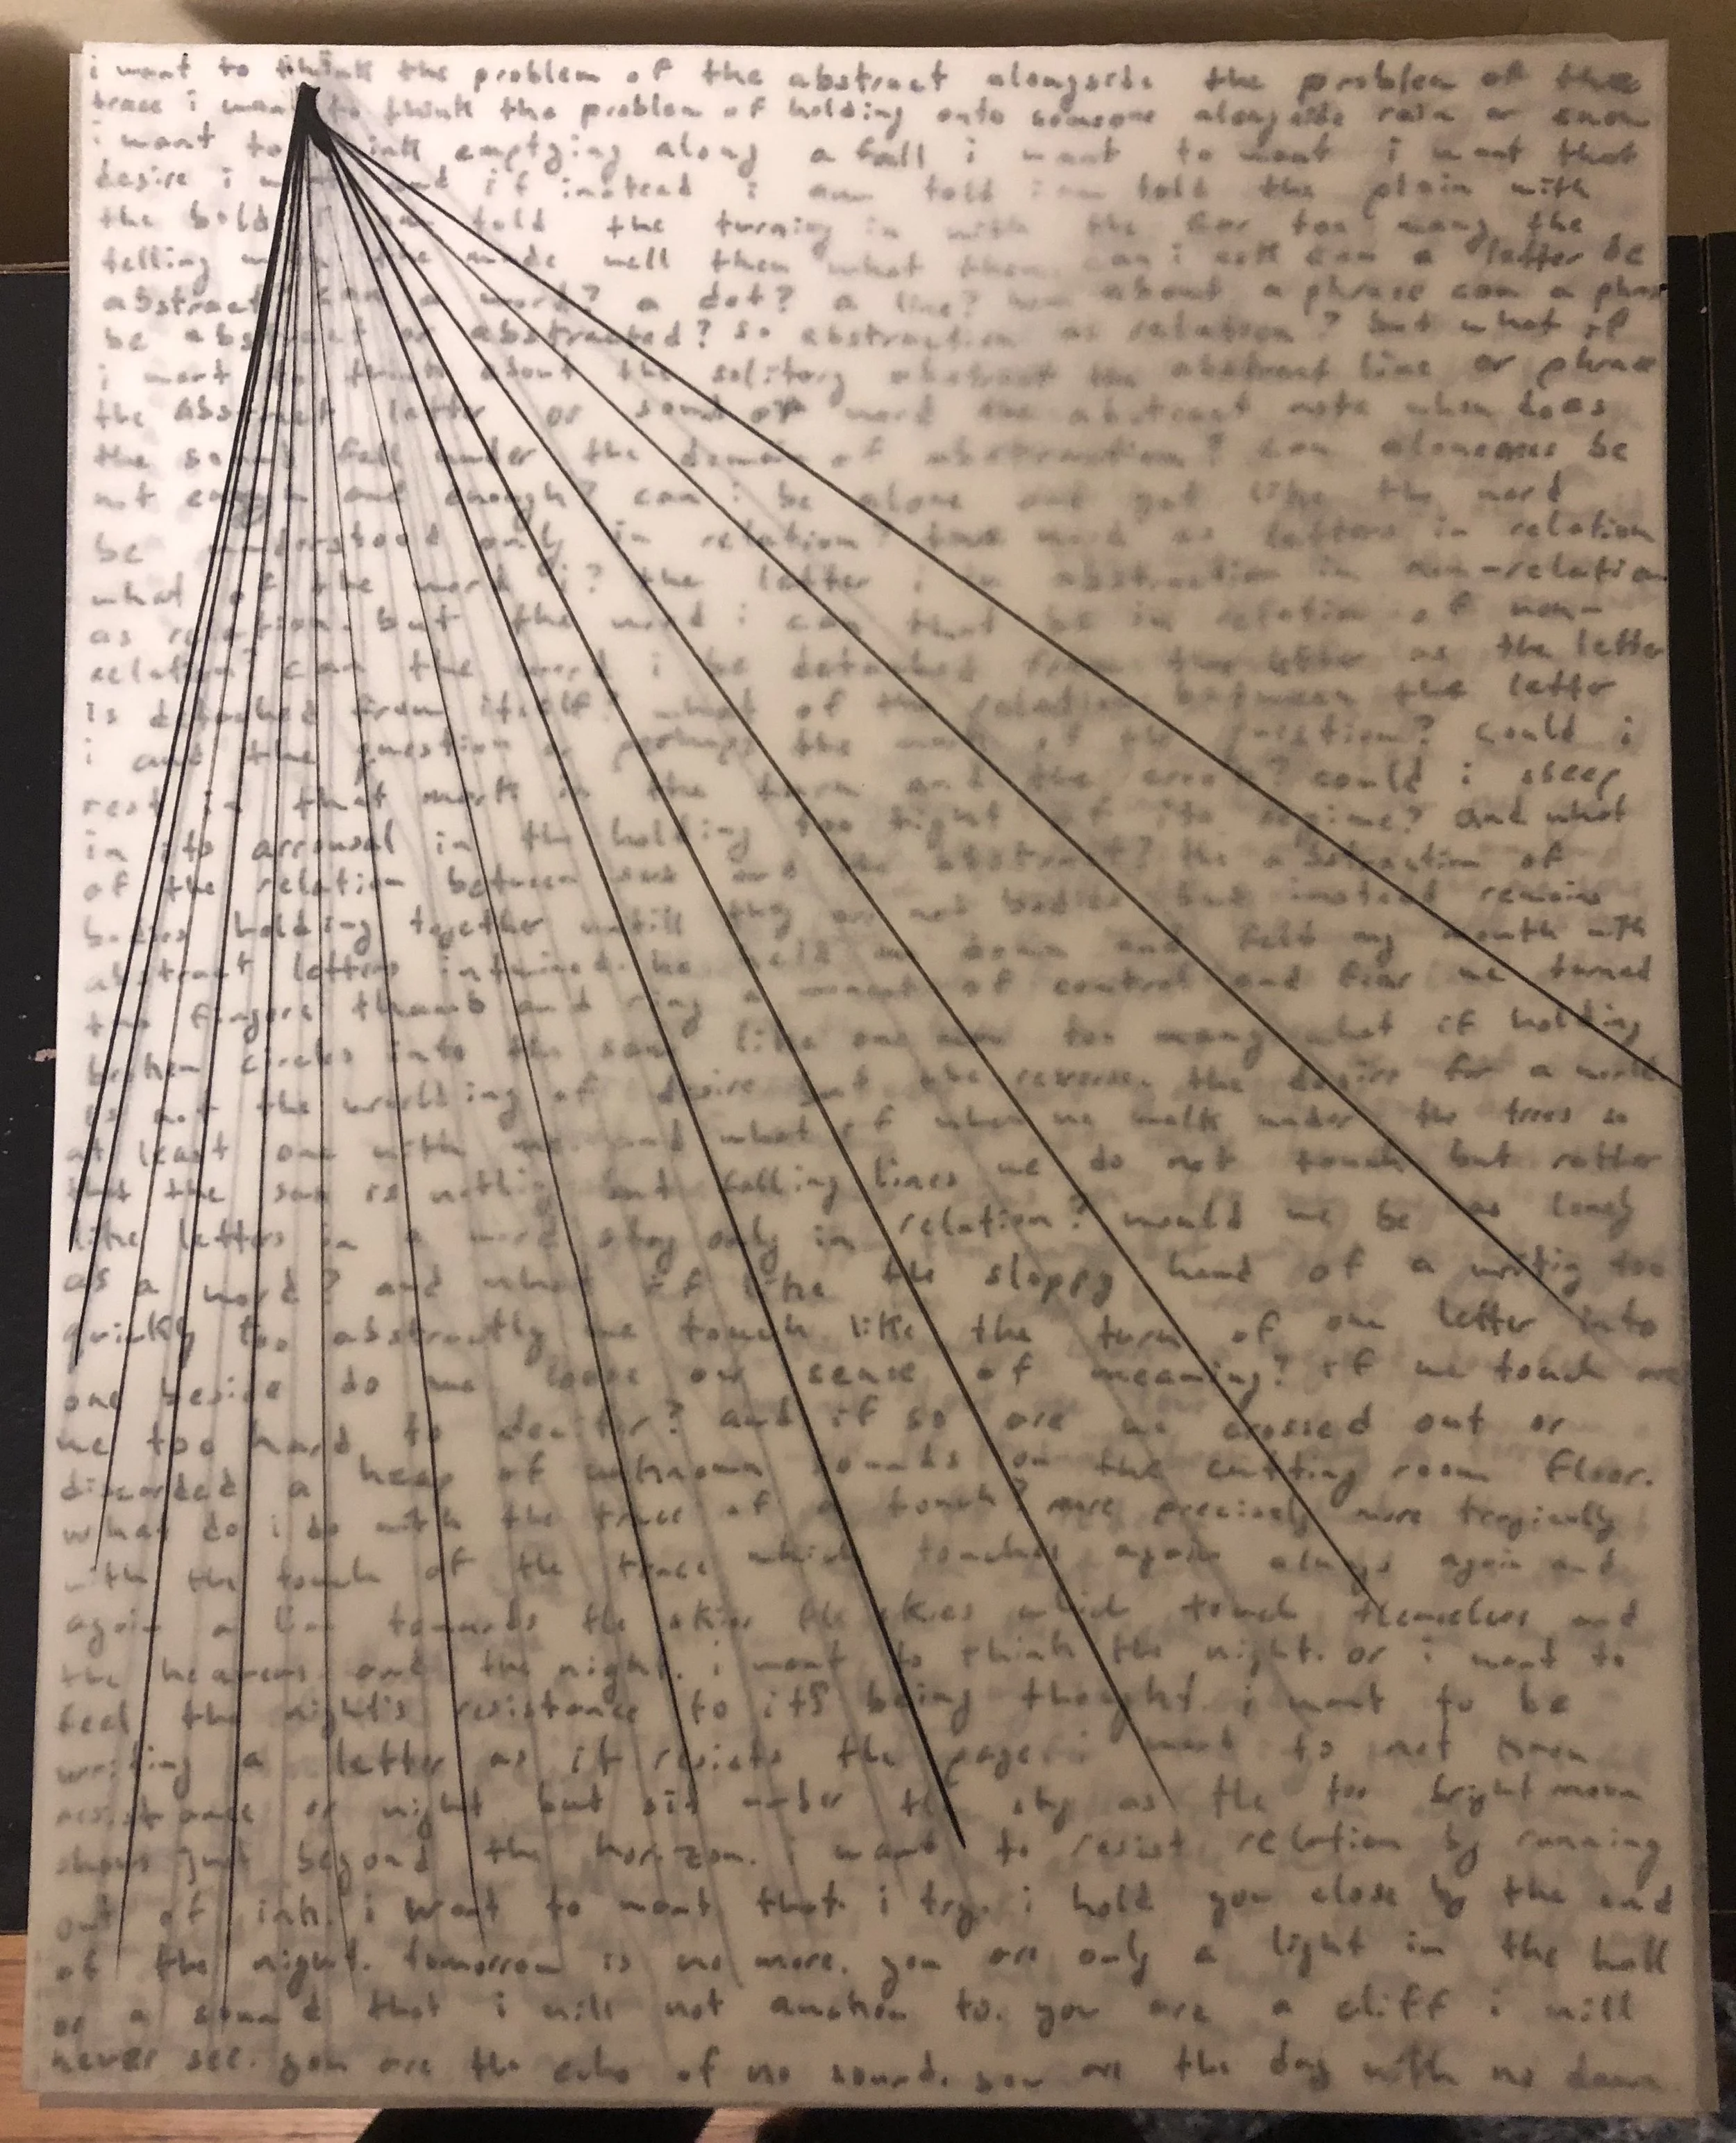 i want to think the problem of the abstract alongside the problem of the
trace i want to think the problem of holding onto someone alongside rain or snow
i want to think emptying along a fall i want to want i want that
desire i want and if instead i am told i am told the plain with
the bold i am told the turning in with the far too many the
telling with the made well then what then can i ask can a letter be
abstract can a word? a dot? a line? how about a phrase can a phrase
be abstract or abstracted? so abstraction as relation? but what if
i want to think about the solitary abstract the abstract line or phrase
the abstract letter or sound or word the abstract note when does
the sound fall under the domain of abstraction? can aloneness be
not enough and enough? can i be alone and yet like the word
be understood only in relation? the word as letters in relation
what of the word i? the letter i is abstraction in non-relation
as relation. but the word i can that be in relation of non-
relation? can the word i be detached from the letter as the letter
is detached from itself? what of the relation between the letter
i and the question or perhaps the mark of the question? could i
rest in that mark in the turn and the erode? could i sleep
in its arrousal in the holding too tight of its regime? and what
of the relation between sex and the abstract? the abstraction of
bodies holding together untill they are not bodies but instead remains
abstract letters intwined. he held me down and felt my mouth with
two fingers thumb and ring a moment of control and fear we turned
broken circles into the sand like one now too many what if holding
is not the worlding of desire but the reverse. the desire for a world
at least one with me. and what if when we walk under the trees so
that the sun is nothing but falling lines we do not touch but rather
like letters in a word stay only in relation? would we be as lonely
as a word? and what if like the sloppy hand of a writig too
quickly too abstractly we touch like the turn of one letter into
one beside do we loose our sense of meaning? if we touch are
we too hard to decifer? and if so are we crossed out or
discarded a heap of unknown sounds on the cutting room floor.
what do i do with the trace of a touch? more precisely more tragically
with the touch of the trace which touches again always again and
again a line towards the skies the skies which touch themselves and
the heavens and the night. i want to think the night. or i want to
feel the night's resistance to its being thought. i want to be
writing a letter as it resists the page i want to not know
resistance or night but sit under the sky as the too bright moon
shows just beyond the horizon. i want to resist relation by running
out of ink. i want to want that. i try. i hold you close by the end
of the night. tomorrow is no more. you are only a light in the hall
or a sound that i will not anchor to. you are a cliff i will
never see. you are the echo of no sound. you are the day with no dawn